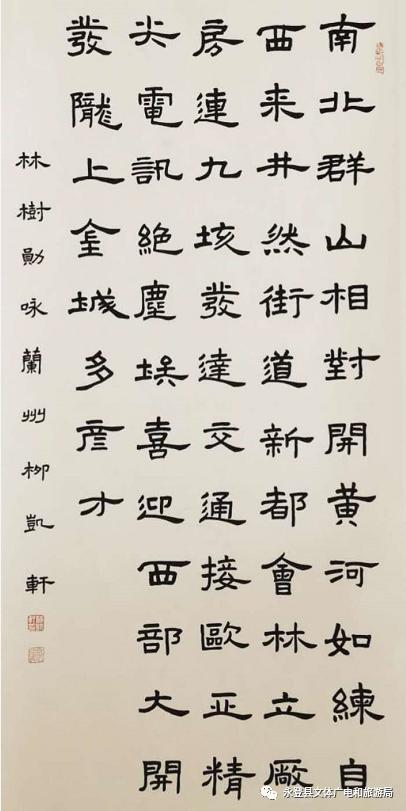 南北群山相對開黄河如練自
西来井然街道新都會林立厰
房連九垓發達交通接歐亞精
尖電訊絕塵埃喜迎西部大開
發隴上金城多彦才
林樹勛咏蘭州柳凱軒
永登县文体广电和旅游局